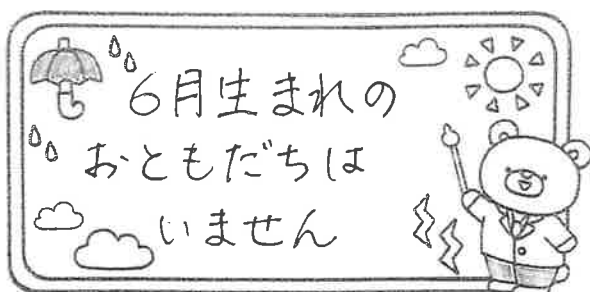 6月生まれの
おともだちは
いません